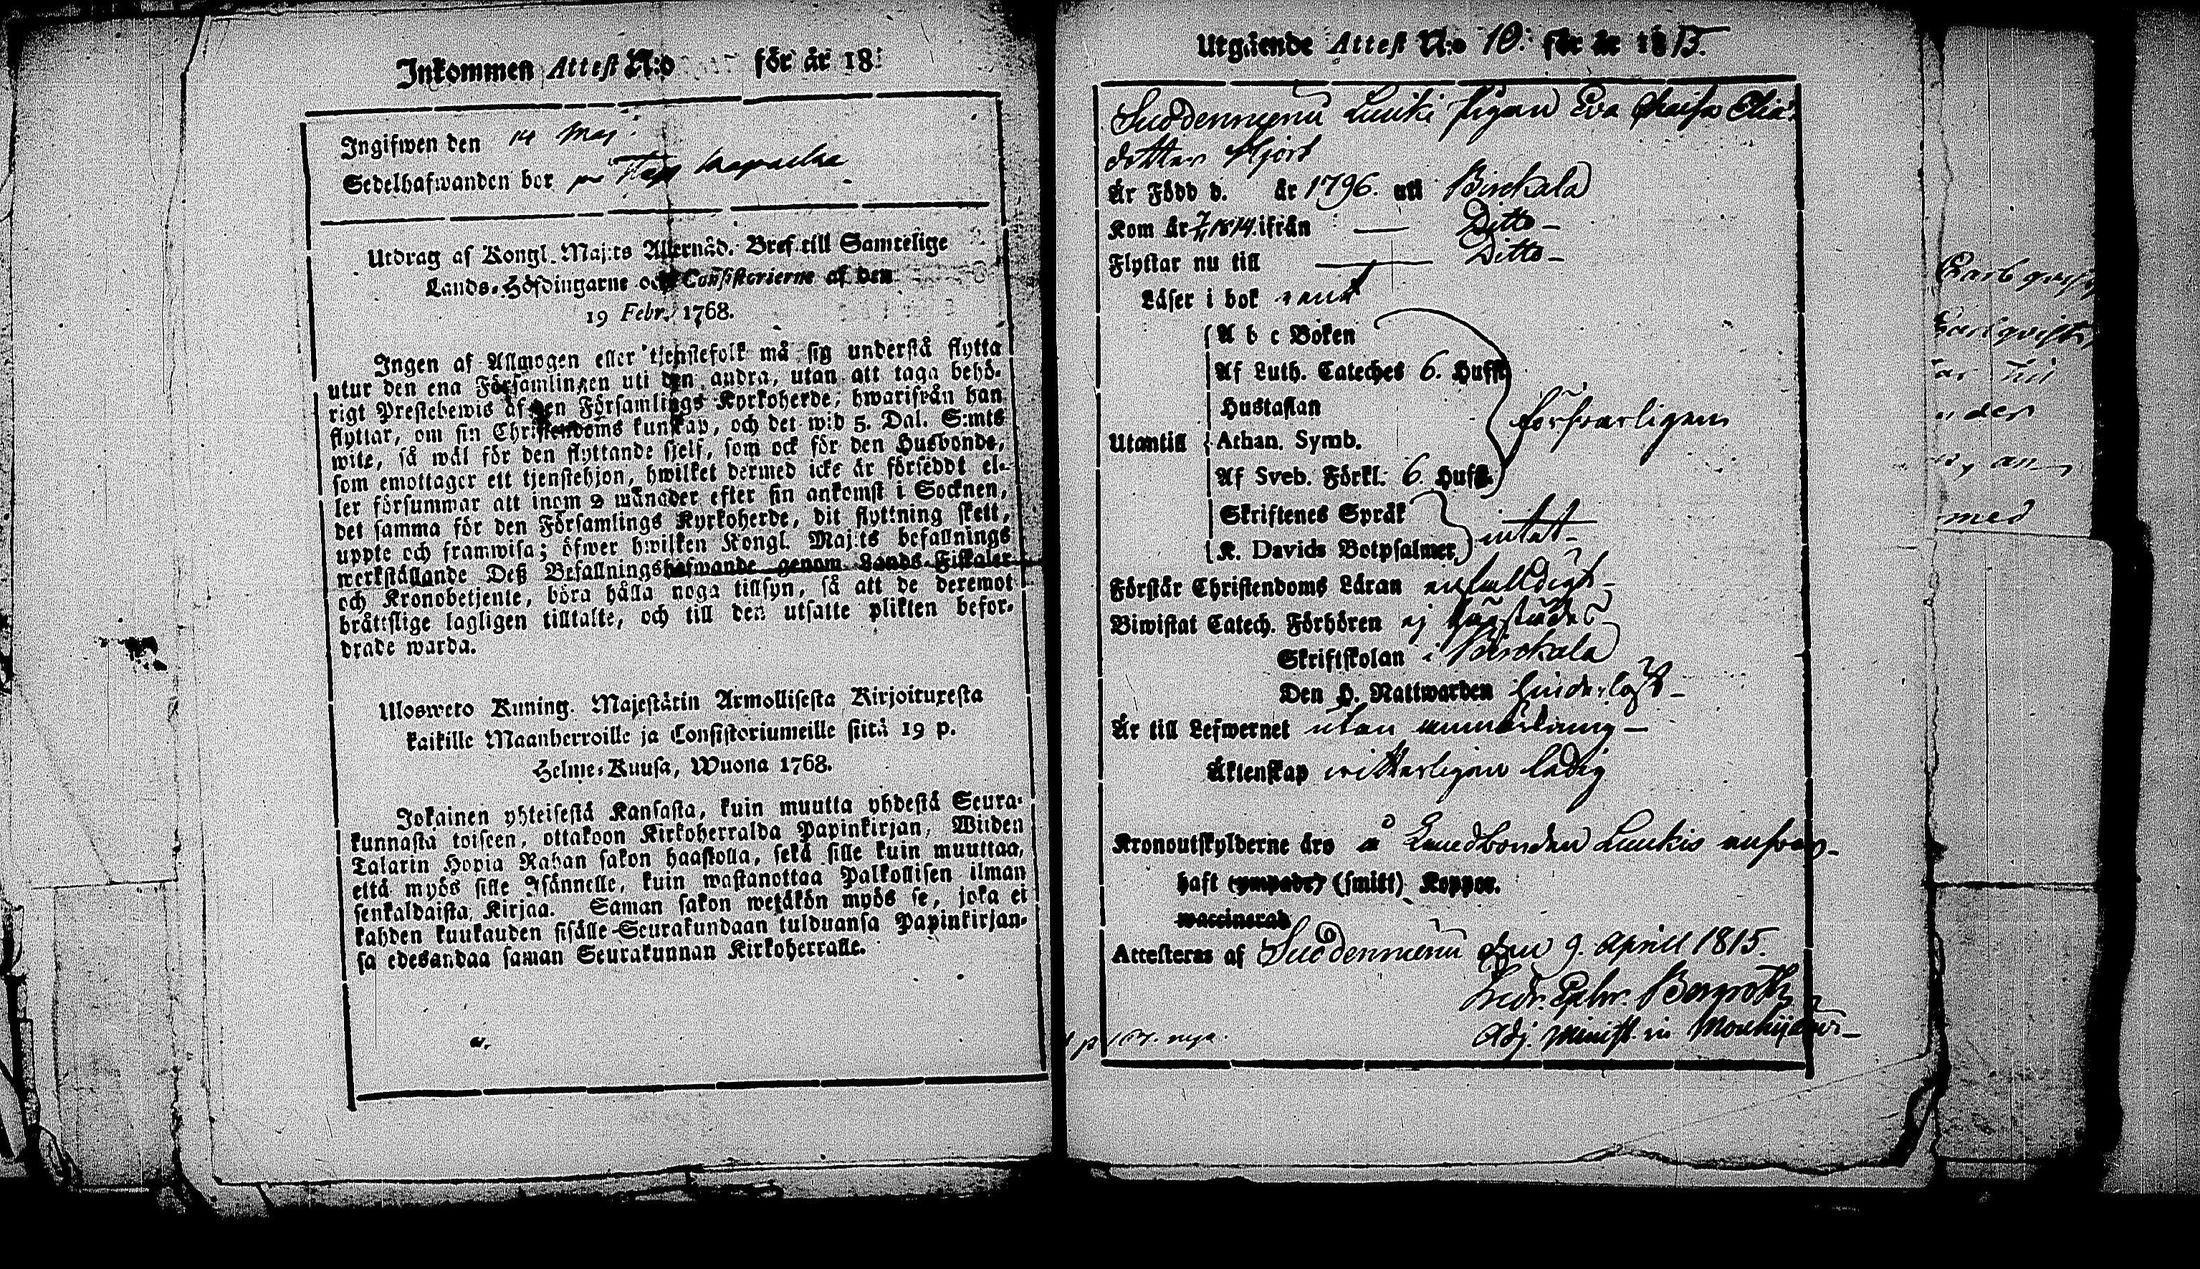 Inkommen Attest N:o för år 18
Ingifwen den 14 Maj
Sedelhafwanden bor
Utdrag af Kongl. Maj:ts Allernåd. Bref till Samtelige
Lands-Höfdingarne och Consistorierne af den
19 Febr. 1768.
Ingen af Allmogen eller tjenstefolk må sig understå flytta
utur den ena Församlingen uti den andra, utan att taga behö-
rigt Prestebewis af den Församlings Kyrkoherde, hwarifrån han
flyttar, om sin Christendoms kunskap, och det wid 5. Dal. S:mts
wite, så wäl för den flyttande sjelf, som ock för den Husbonde,
som emottager ett tjenstehjon, hwilket dermed icke är förseddt el-
ler försummar att inom 2 månader efter sin ankomst i Socknen,
det samma för den Församlings Kyrkoherde, dit flyttning skett,
uppte och framwisa; öfwer hwilken Kongl. Maj:ts befallnings
werkställande Deß Befallningshafwande genom Lands-Fiskaler
och Kronobetjente, böra hålla noga tillsyn, så att de deremot
bråttslige lagligen tilltalte, och till den utsatte plikten befor-
drade warda.
Ulosweto Kuning. Majestätin Armollisesta Kirjoituxesta
kaikille Maanherroille ja Consistoriumeille siitä 19 p.
Helme-Kuusa, Wuona 1768.
Jokainen yhteisestä Kansasta, kuin muutta yhdestä Seura-
kunnasta toiseen, ottakoon Kirkoherralda Papinkirjan, Wiiden
Talarin Hopia Rahan sakon haastolla, sekä sille kuin muuttaa,
että myös sille Isännelle, kuin wastanottaa Palkollisen ilman
senkaldaista Kirjaa. Saman sakon wetäkön myös se, joka ei
kahden kuukauden sisälle Seurakundaan tulduansa Papinkirjan-
sa edesandaa saman Seurakunnan Kirkoherralle.
Utgående Attest N:o 10. för år 1815.
Suodenniemi Luuki Pigan Eva Maja Elia-
dotter Hjort
Är Född d. år 1796. uti Birckala
Kom år 1814. ifrån — Ditto –
Flyttar nu till — Ditto –
Läser i bok rent
A b c Boken
Af Luth. Cateches 6. Hufst.
Hustaflan
Utantill Athan. Symb. försvarligen
Af Sveb. Förkl. 6. Hufst.
Skriftenes Språk
K. Davids Botpsalmer intet –
Förstår Christendoms Läran enfaldigt –
Biwistat Catech. Förhören ej härstädes
Skriftskolan i Birckala
Den H. Nattwarden hinderlöst –
Är till Lefwernet utan anmärkning –
Äktenskap witterligen ledig
Kronoutskylderne äro å Landbonden Luukis
haft (ympade) (smitt) Koppor.
waccinerad
Attesteras af Suodenniemi den 9. Aprill 1815.
Bergroth
Adj. Minist. in Mouhijärvi –